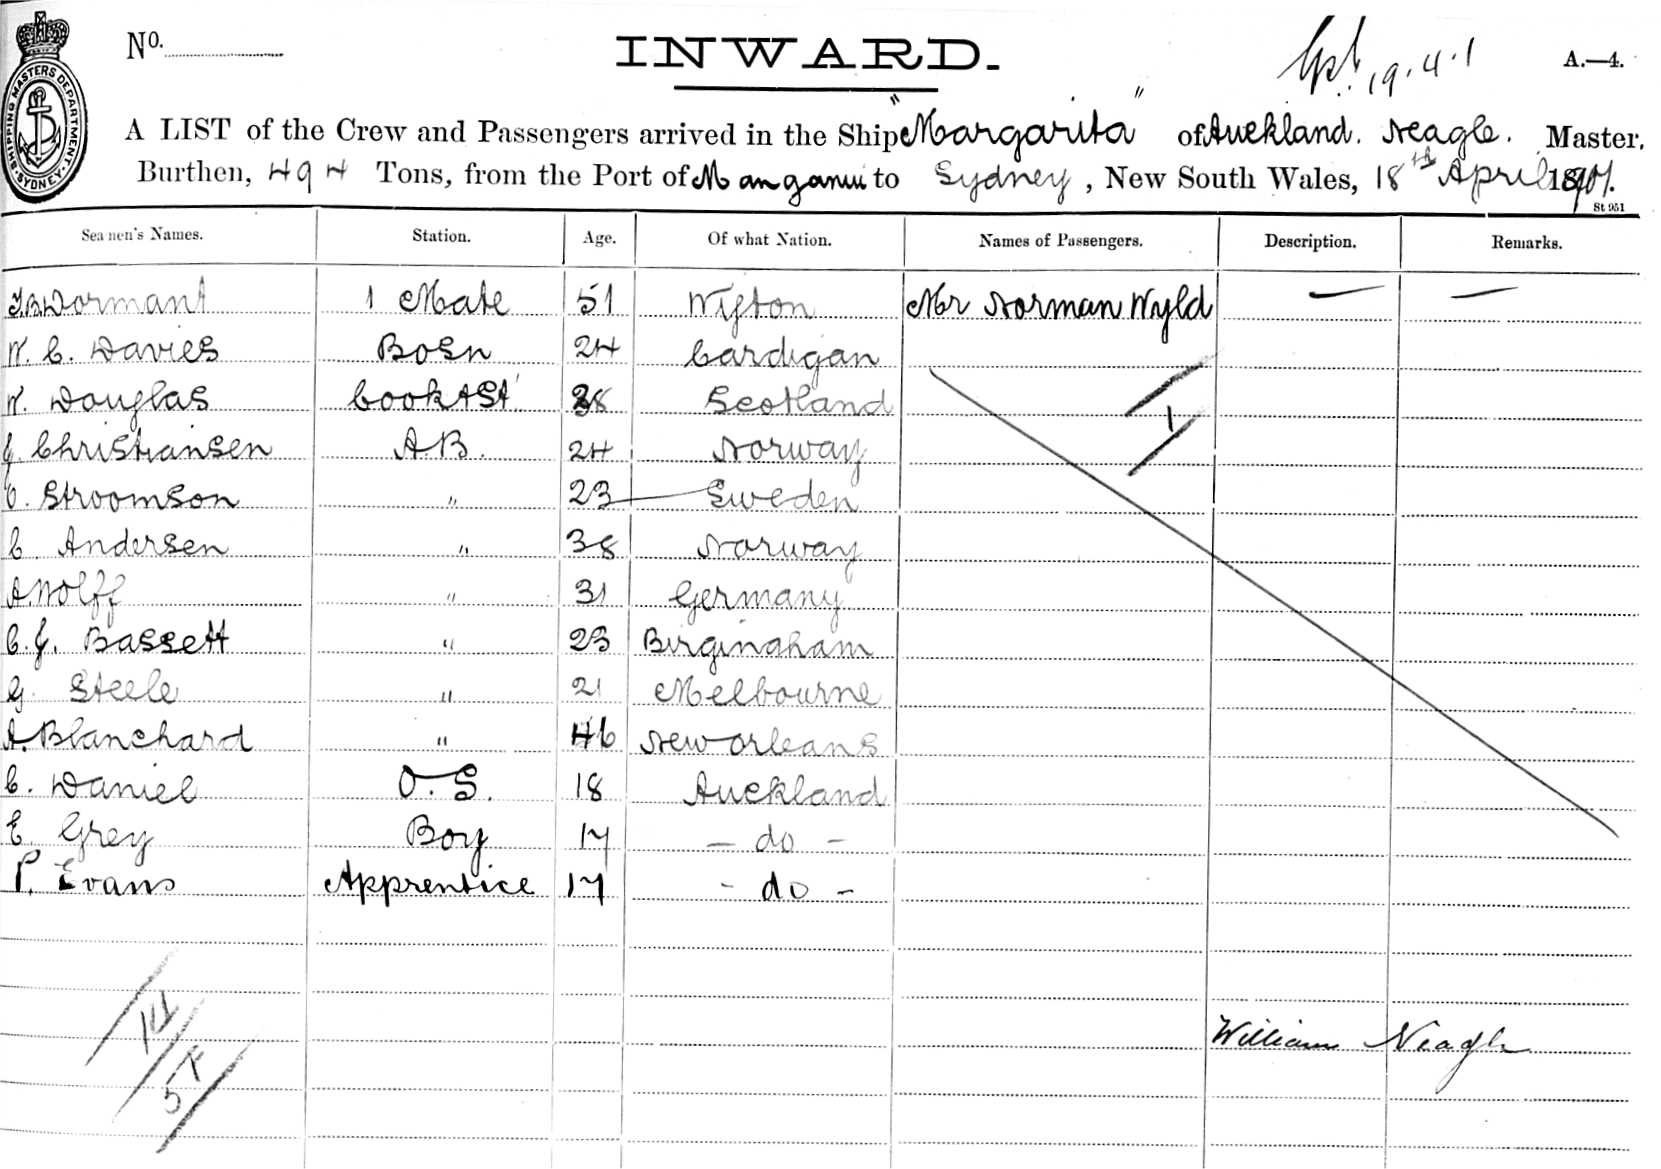 No.
INWARD.
19.4.1
A.—4.
SHIPPING MASTERS DEPARTMENT
SYDNEY
A LIST of the Crew and Passengers arrived in the Ship "Margarita" of Auckland. Neagle. Master,
Burthen, 494 Tons, from the Port of Manganui to Sydney, New South Wales, 18th April 1901.
St 951
Seamen's Names. Station. Age. Of what Nation. Names of Passengers. Description. Remarks.
Dormant 1 Mate 51 Mr Norman Wyld — —
W. C. Davies Bosn 24 Cardigan
W. Douglas Cook & St 38 Scotland
J. Christiansen A B. 24 Norway
1
O. Stroomson " 23 Sweden
C. Andersen " 38 Norway
A. Wolff " 31 Germany
C. J. Bassett " 23 Birgingham
G. Steele " 21 Melbourne
A. Blanchard " 46 New Orleans
C. Daniel O.S. 18 Auckland
E. Grey Boy 17 - do -
P. Evans Apprentice 17 - do -
14
William Neagle
5